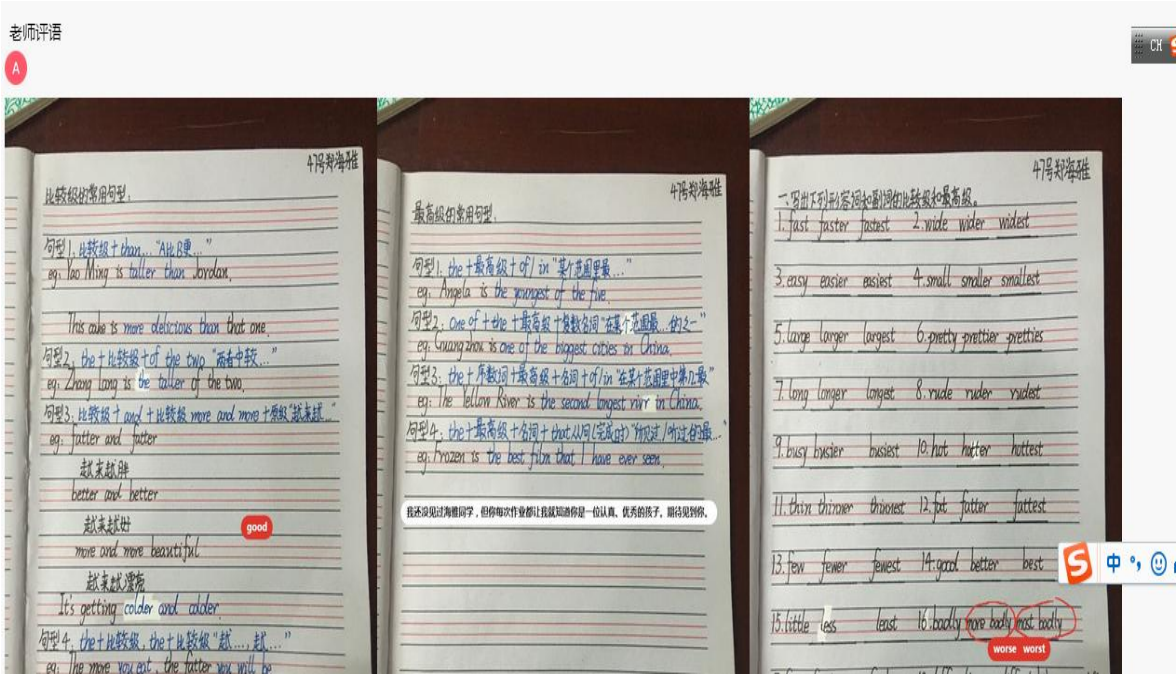 老师评语
A
CH
47号郑海雅
比较级的常用句型:
句型1. 比较级+than... "A比B更..."
eg: Yao Ming is taller than Jordan.
This cake is more delicious than that one.
句型2. the+比较级+of the two "两者中较..."
eg: Zhang Long is the taller of the two.
句型3: 比较级+and+比较级 more and more+原级"越来越..."
eg: fatter and fatter
越来越胖
better and better
越来越好
good
more and more beautiful
越来越漂亮
It's getting colder and colder.
句型4. the+比较级, the+比较级"越..., 越..."
eg: The more you eat, the fatter you will be
47号郑海雅
最高级的常用句型.
句型1. the+最高级+of/in "某个范围里最..."
eg: Angela is the youngest of the five.
句型2: one of+the+最高级+复数名词"在某个范围最...的之一"
eg: Guangzhou is one of the biggest cities in China.
句型3: the+序数词+最高级+名词+of/in"在某个范围里中第几最"
eg: The Yellow River is the second longest in China.
句型4: the+最高级+名词+that从句(完成时)"所见过/听过的最..."
eg: Frozen is the best film that I have ever seen.
我还没见过海雅同学,但你每次作业都让我就知道你是一位认真、优秀的孩子。期待见到你。
47号郑海雅
一.写出下列形容词和副词的比较级和最高级。
1. fast faster fastest 2. wide wider widest
3. easy easier easiest 4. small smaller smallest
5. large larger largest 6. pretty prettier pretties
7. long longer longest 8. rude ruder rudest
9. busy busier busiest 10. hot hotter hottest
11. thin thinner thinnest 12. fat fatter fattest
13. few fewer fewest 14. good better best
15. little less least 16. badly more badly most badly
worse worst
中